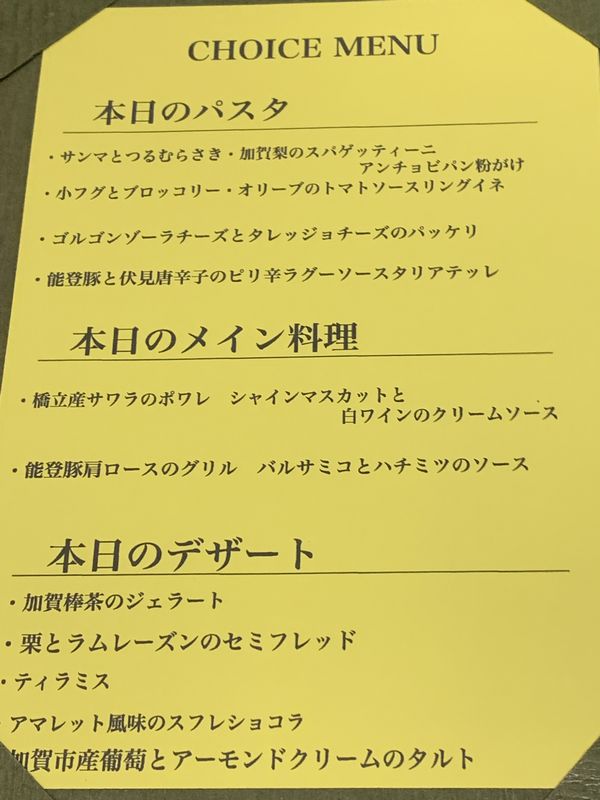 CHOICE MENU
本日のパスタ
・サンマとつるむらさき・加賀梨のスパゲッティーニ
アンチョビパン粉がけ
・小フグとブロッコリー・オリーブのトマトソースリングイネ
・ゴルゴンゾーラチーズとタレッジョチーズのパッケリ
・能登豚と伏見唐辛子のピリ辛ラグーソースタリアテッレ
本日のメイン料理
・橋立産サワラのポワレ　シャインマスカットと
白ワインのクリームソース
・能登豚肩ロースのグリル　バルサミコとハチミツのソース
本日のデザート
・加賀棒茶のジェラート
・栗とラムレーズンのセミフレッド
・ティラミス
・アマレット風味のスフレショコラ
加賀市産葡萄とアーモンドクリームのタルト